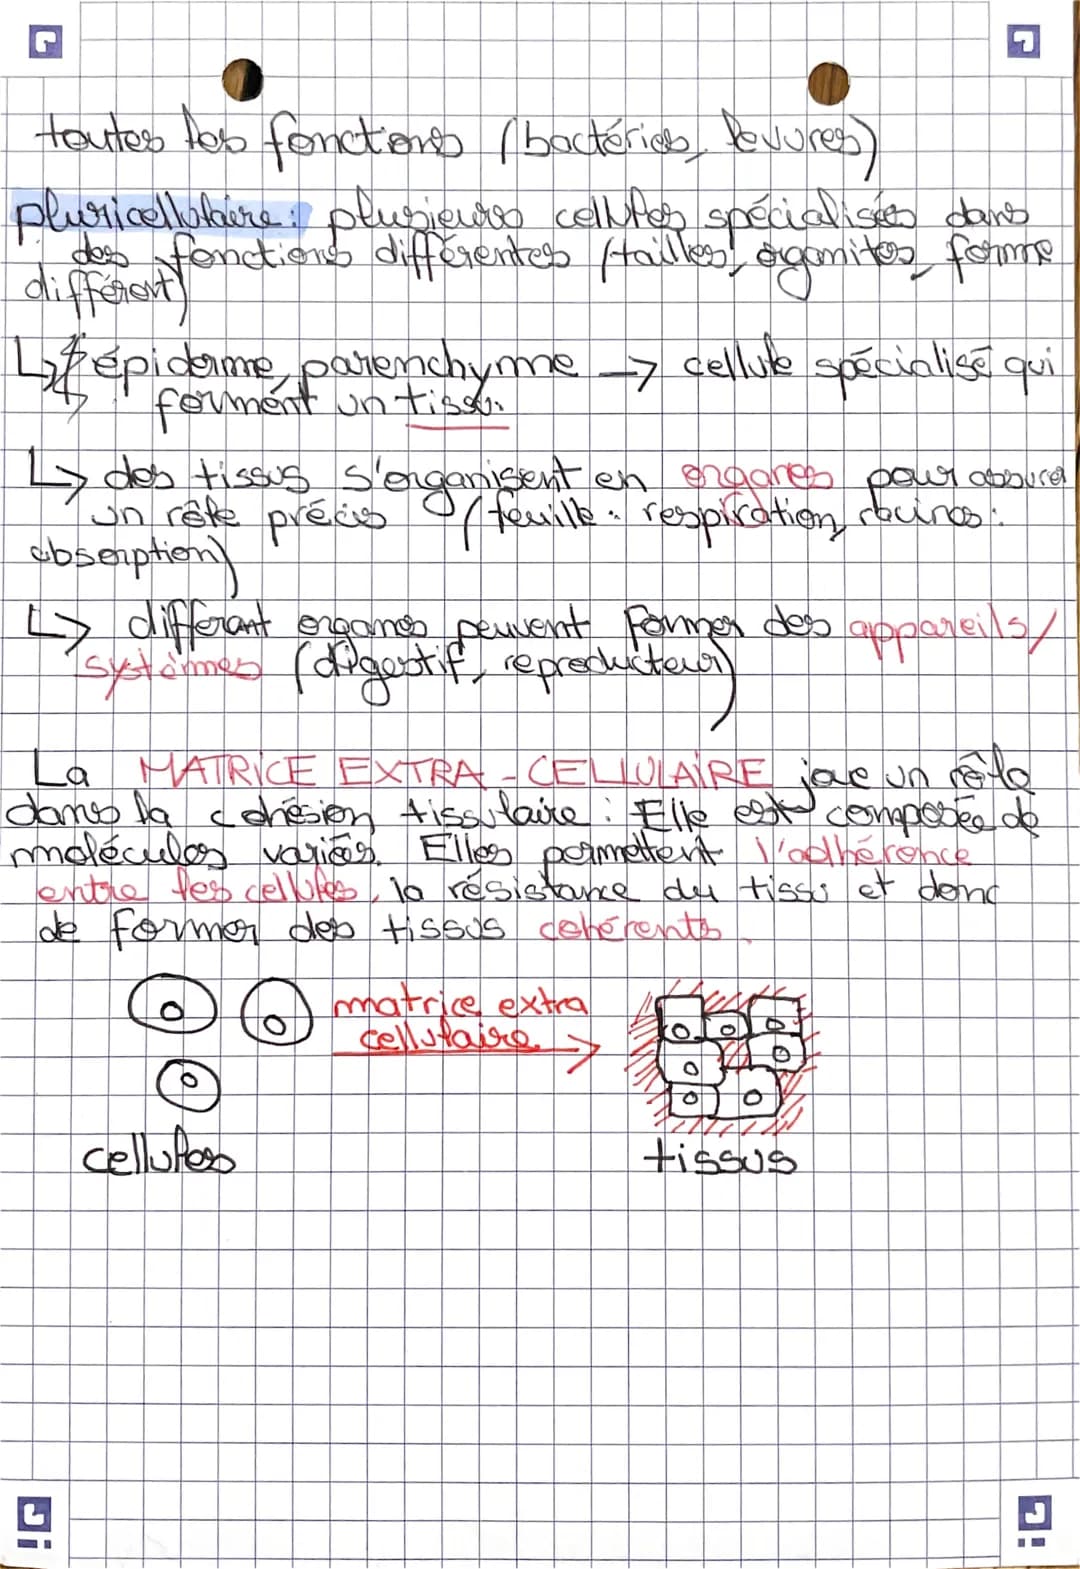 toutes les fonctions (bactéries, levures)
pluricellulaire : plusieurs cellules spécialisées dans
des fonctions différentes (tailles, organites, forme
différent)
↳ épiderme, parenchyme → cellule spécialisé qui
forment un tissu.
↳ des tissus s'organisent en organes pour assurer
un rôle précis (feuille : respiration, racines :
absorption)
↳ différant organes peuvent former des appareils/
systèmes (digestif, reproducteur)
La MATRICE EXTRA-CELLULAIRE joue un rôle
dans la cohésion tissulaire : Elle est composée de
moléculos variées. Elles permettent l'adhérence
entre les cellules, la résistance du tissu et donc
de former des tissus cohérents.
matrice extra
cellulaire →
cellules
tissus